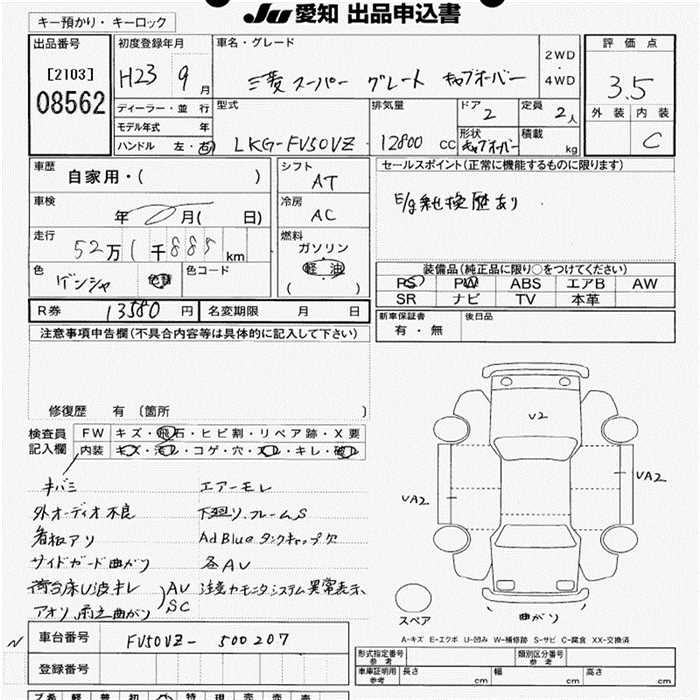 JU 愛知 出品申込書
キー預かり・キーロック
出品番号
[2103]
08562
初度登録年月
H23 9月
ディーラー・並 行
モデル年式 年
ハンドル 左・右
車名・グレード
三菱 スーパー グレート キャブオーバー
2WD
・
4WD
型式
LKG-FV50VZ
排気量
12800 CC
ドア
2
定員
2人
形状
キャブオーバー
積載
kg
評価点
3.5
外装 内装
C
車歴
自家用・( )
車検
年 月( 日)
走行
52万1千885km
色
ゲンシャ
色替
色コード
シフト
AT
冷房
AC
燃料
ガソリン
軽油
( )
セールスポイント(正常に機能するものに限ります)
E/g純換歴あり
装備品(純正品に限り○をつけてください)
PS PW ABS エアB AW
SR ナビ TV 本革
R券 13580円 名変期限 月 日
新車保証書
有・無
後日品
注意事項申告欄(不具合内容等は具体的に記入して下さい)
修復歴 有 〔箇所 〕
検査員
記入欄
FW キズ・飛石・ヒビ割・リペア跡・X要
内装 キズ・汚レ・コゲ・穴・スレ・キレ・破レ
キバミ エアーモレ
外オーディオ不良 下廻り、フレームS
看板アリ AdBlueタンクキャップ欠
サイドガード曲がり 各AU
荷台床U波キレ AU
SC
注意カモニタシステム異常表示、
アオリ 曲がり
V2
UA2
UA2
曲がり
スペア
A-キズ E-エクボ U-凹み W-補修跡 S-サビ C-腐食 XX-交換済
車台番号 FV50VZ-500207
登録番号
型式指定番号
参考
類別区分番号
参考
車庫証明用
参考
長さ cm 幅 cm 高さ cm